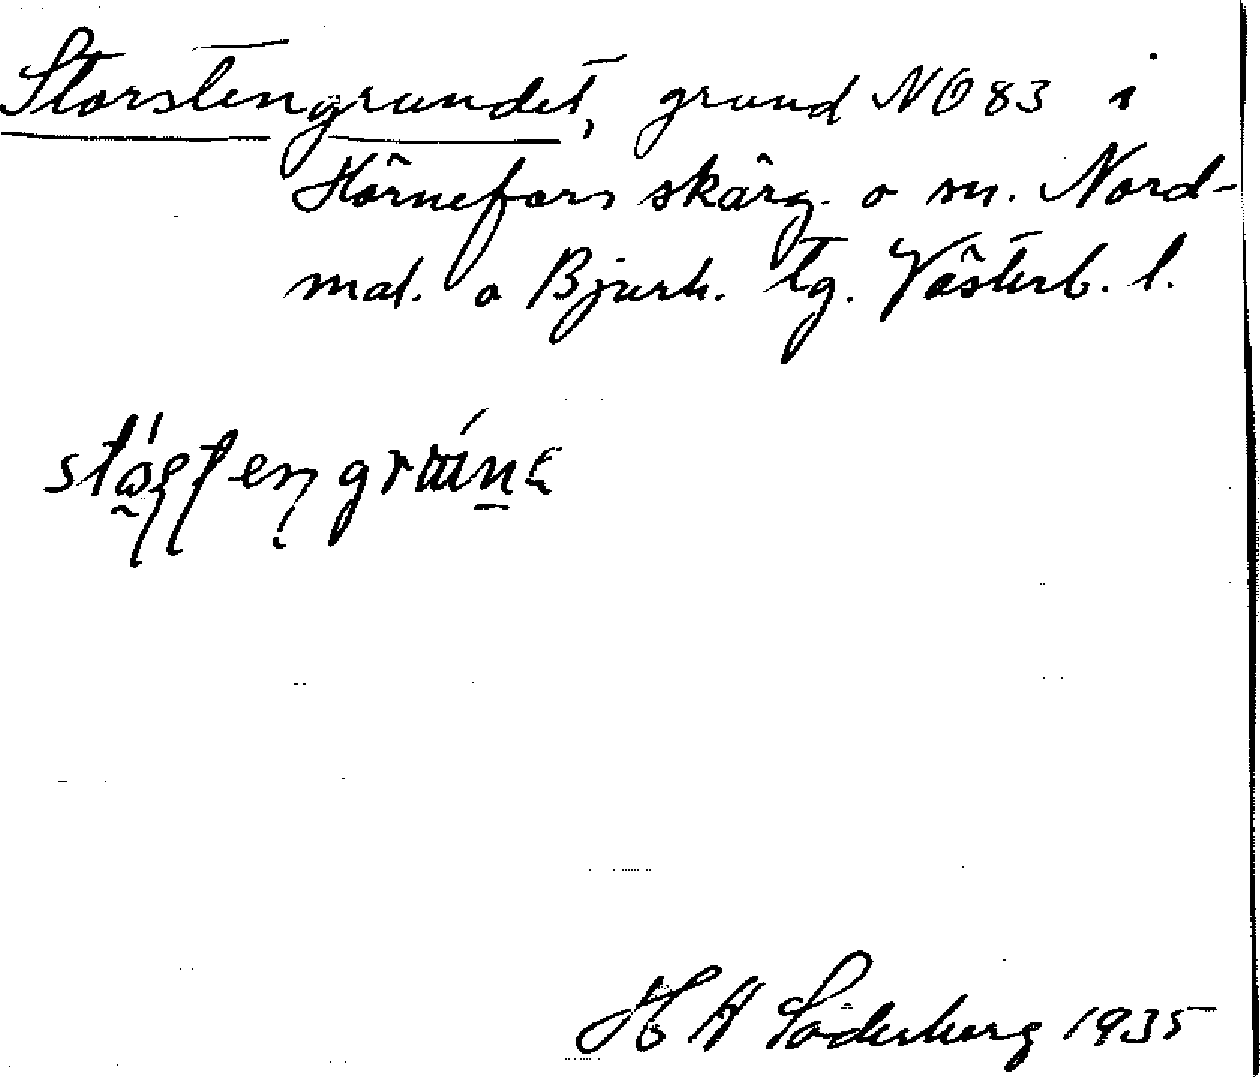 Storstengrundet, grund NO 83 i
Hörnefors skärg. o sn. Nord-
mal. o Bjurh. tg. Västerb. l.
H A Söderberg 1935